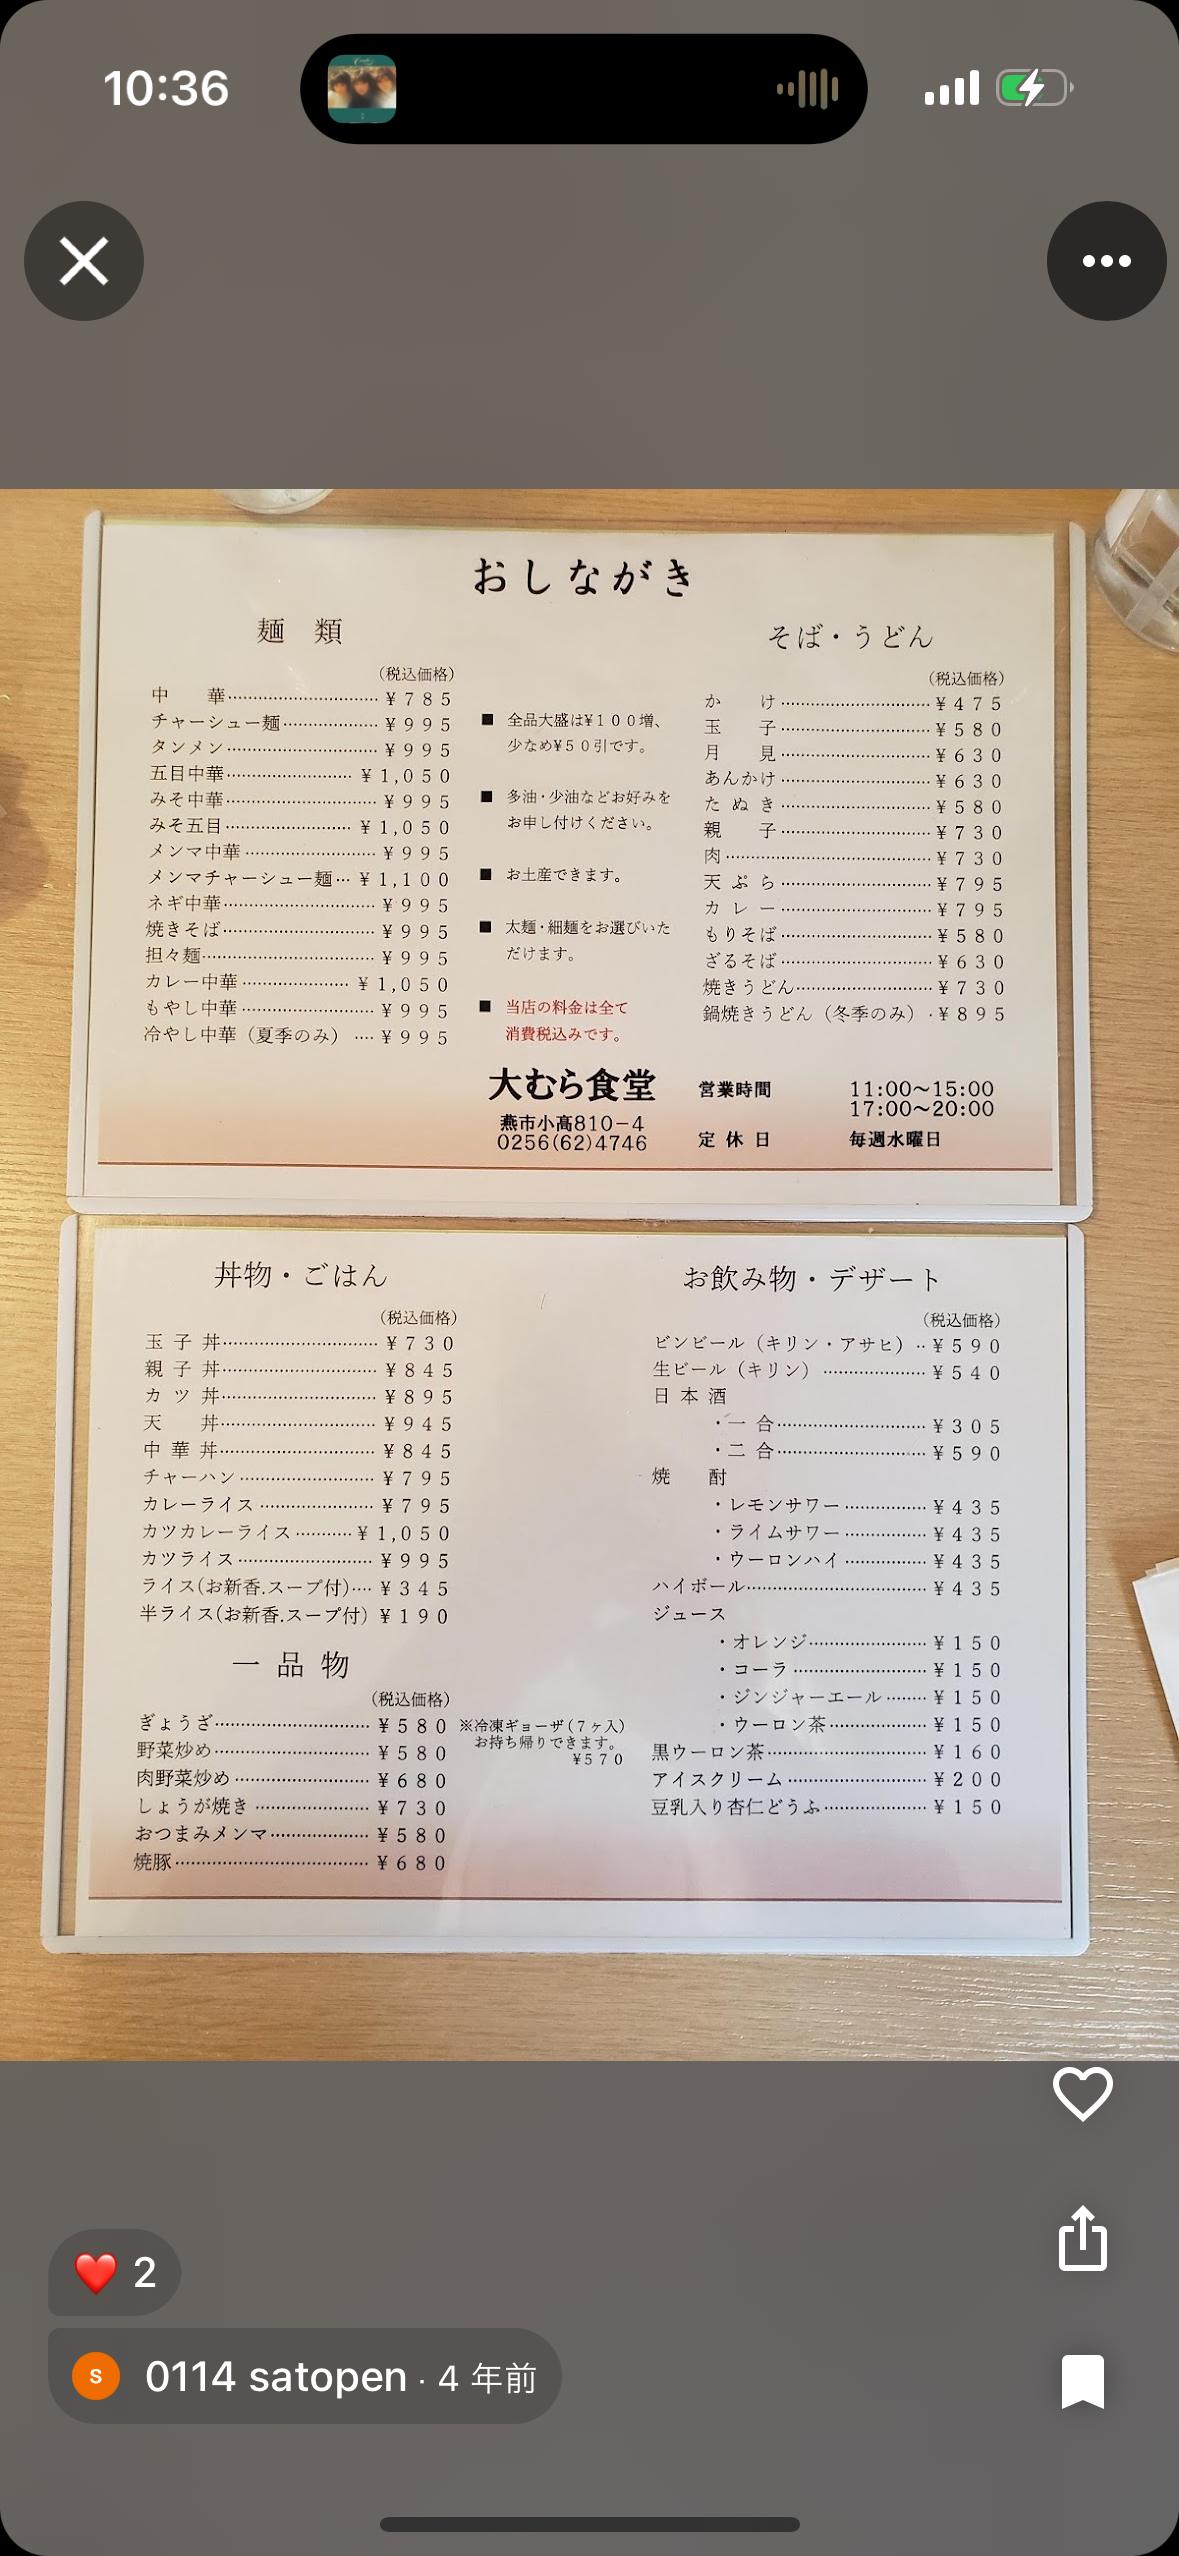 10:36
おしながき
麺 類
(税込価格)
中 華 ¥785
チャーシュー麺 ¥995
タンメン ¥995
五目中華 ¥1,050
みそ中華 ¥995
みそ五目 ¥1,050
メンマ中華 ¥995
メンマチャーシュー麺 ¥1,100
ネギ中華 ¥995
焼きそば ¥995
担々麺 ¥995
カレー中華 ¥1,050
もやし中華 ¥995
冷やし中華(夏季のみ) ¥995
■ 全品大盛は¥100増、
少なめ¥50引です。
■ 多油・少油などお好みを
お申し付けください。
■ お土産できます。
■ 太麺・細麺をお選びいた
だけます。
■ 当店の料金は全て
消費税込みです。
そば・うどん
(税込価格)
か け ¥475
玉 子 ¥580
月 見 ¥630
あんかけ ¥630
た ぬ き ¥580
親 子 ¥730
肉 ¥730
天 ぷ ら ¥795
カ レ ー ¥795
もりそば ¥580
ざるそば ¥630
焼きうどん ¥730
鍋焼きうどん(冬季のみ) ¥895
大むら食堂
燕市小高810-4
0256(62)4746
営業時間 11:00〜15:00
17:00〜20:00
定 休 日 毎週水曜日
丼物・ごはん
(税込価格)
玉 子 丼 ¥730
親 子 丼 ¥845
カ ツ 丼 ¥895
天 丼 ¥945
中 華 丼 ¥845
チャーハン ¥795
カレーライス ¥795
カツカレーライス ¥1,050
カツライス ¥995
ライス(お新香.スープ付) ¥345
半ライス(お新香.スープ付) ¥190
一 品 物
(税込価格)
ぎょうざ ¥580
野菜炒め ¥580
肉野菜炒め ¥680
しょうが焼き ¥730
おつまみメンマ ¥580
焼豚 ¥680
※冷凍ギョーザ(7ヶ入)
お持ち帰りできます。
¥570
お飲み物・デザート
(税込価格)
ビンビール(キリン・アサヒ) ¥590
生ビール(キリン) ¥540
日 本 酒
・一 合 ¥305
・二 合 ¥590
焼 酎
・レモンサワー ¥435
・ライムサワー ¥435
・ウーロンハイ ¥435
ハイボール ¥435
ジュース
・オレンジ ¥150
・コーラ ¥150
・ジンジャーエール ¥150
・ウーロン茶 ¥150
黒ウーロン茶 ¥160
アイスクリーム ¥200
豆乳入り杏仁どうふ ¥150
❤️ 2
S 0114 satopen · 4 年前